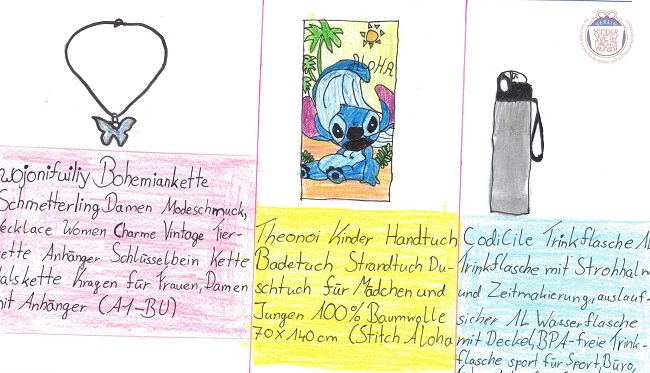 wojonifuiliy Bohemiankette
Schmetterling Damen Modeschmuck,
Necklace Women Charme Vintage Tier-
kette Anhänger Schlüsselbein Kette
alskette Kragen für Frauen, Damen
mit Anhänger (A1-BU)
ALOHA
Theonoi Kinder Handtuch
Badetuch Strandtuch Du-
schtuch für Mädchen und
Jungen 100% Baumwolle
70x140cm (Stitch Aloha
CodiCile Trinkflasche 1L
Trinkflasche mit Strohhalm
und Zeitmakierung, auslauf-
sicher 1L Wasserflasche
mit Deckel, BPA-freie Trink-
flasche sport für Sport, Büro,
KINDER